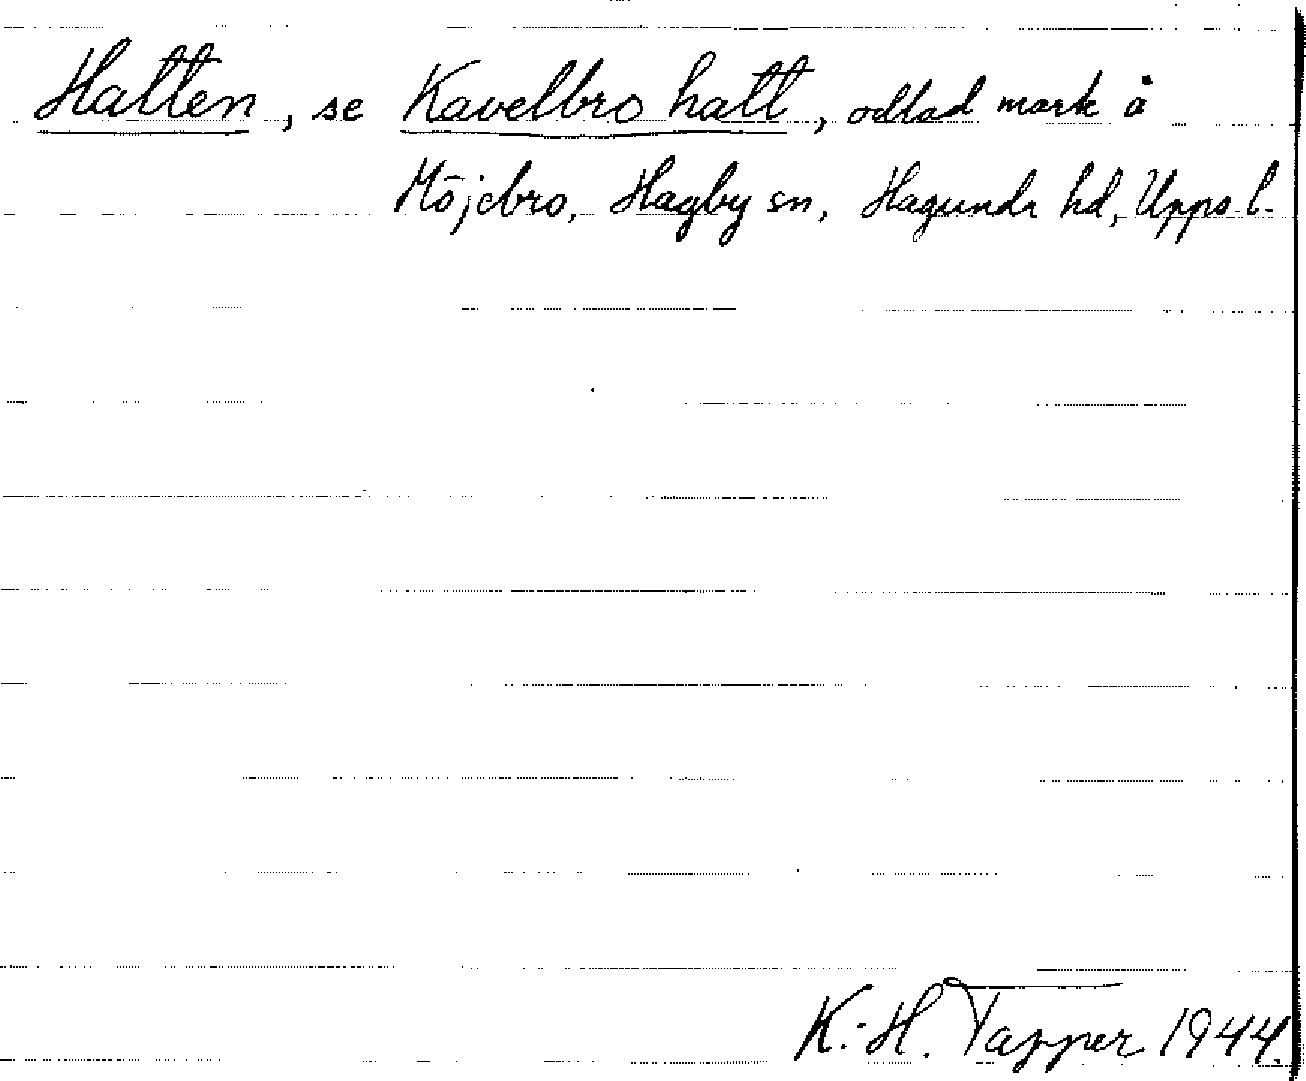 Hatten, se Kavelbro hatt, odlad mark å
Möjebro, Hagby sn, Hagunda hd, Upps. l.
K.-H. Tapper 1944.